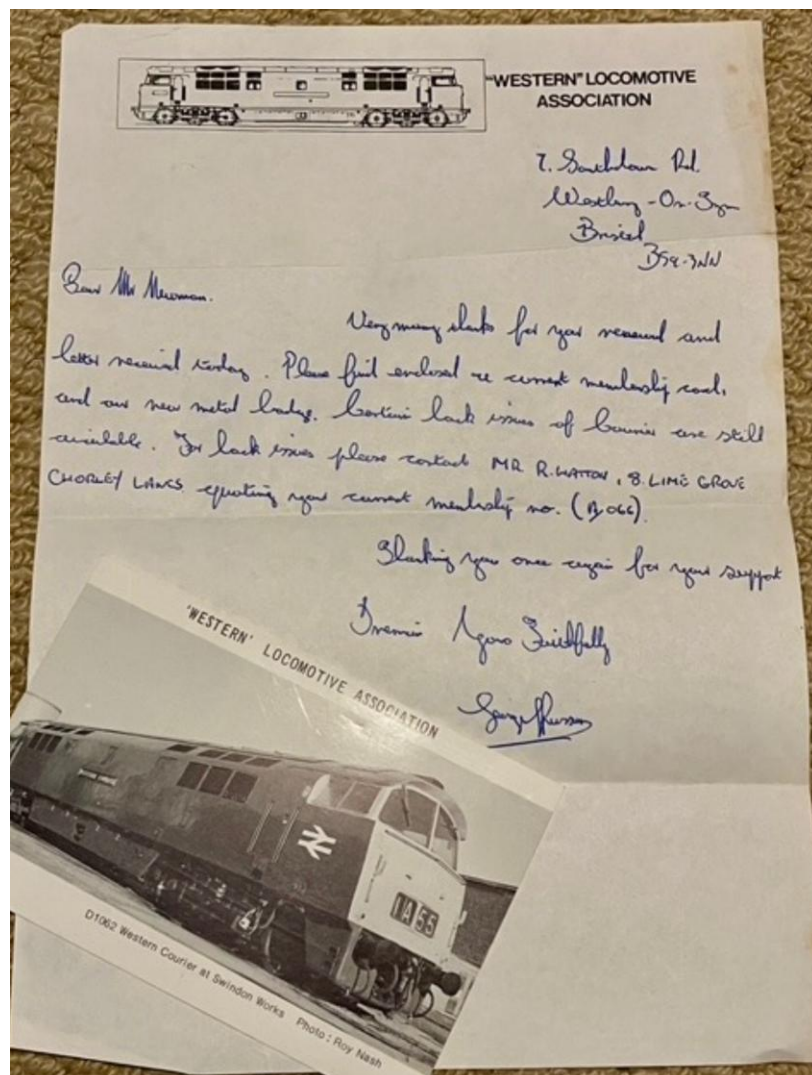 "WESTERN" LOCOMOTIVE
ASSOCIATION
7. Southdown Rd.
Westbury-On-Trym
Bristol
BS9-3NN
Dear Mr Newman.
Very many thanks for your renewal and
letter received today. Please find enclosed current membership card,
and our new metal badge. Certain back issues of Courier are still
available. For back issues please contact MR R. WATTON, 8. LIME GROVE
CHORLEY LANCS quoting your current membership no. (A/066).
Thanking you once again for your support
I remain Yours Faithfully
George
'WESTERN' LOCOMOTIVE ASSOCIATION
1A55
D1062 Western Courier at Swindon Works Photo: Roy Nash